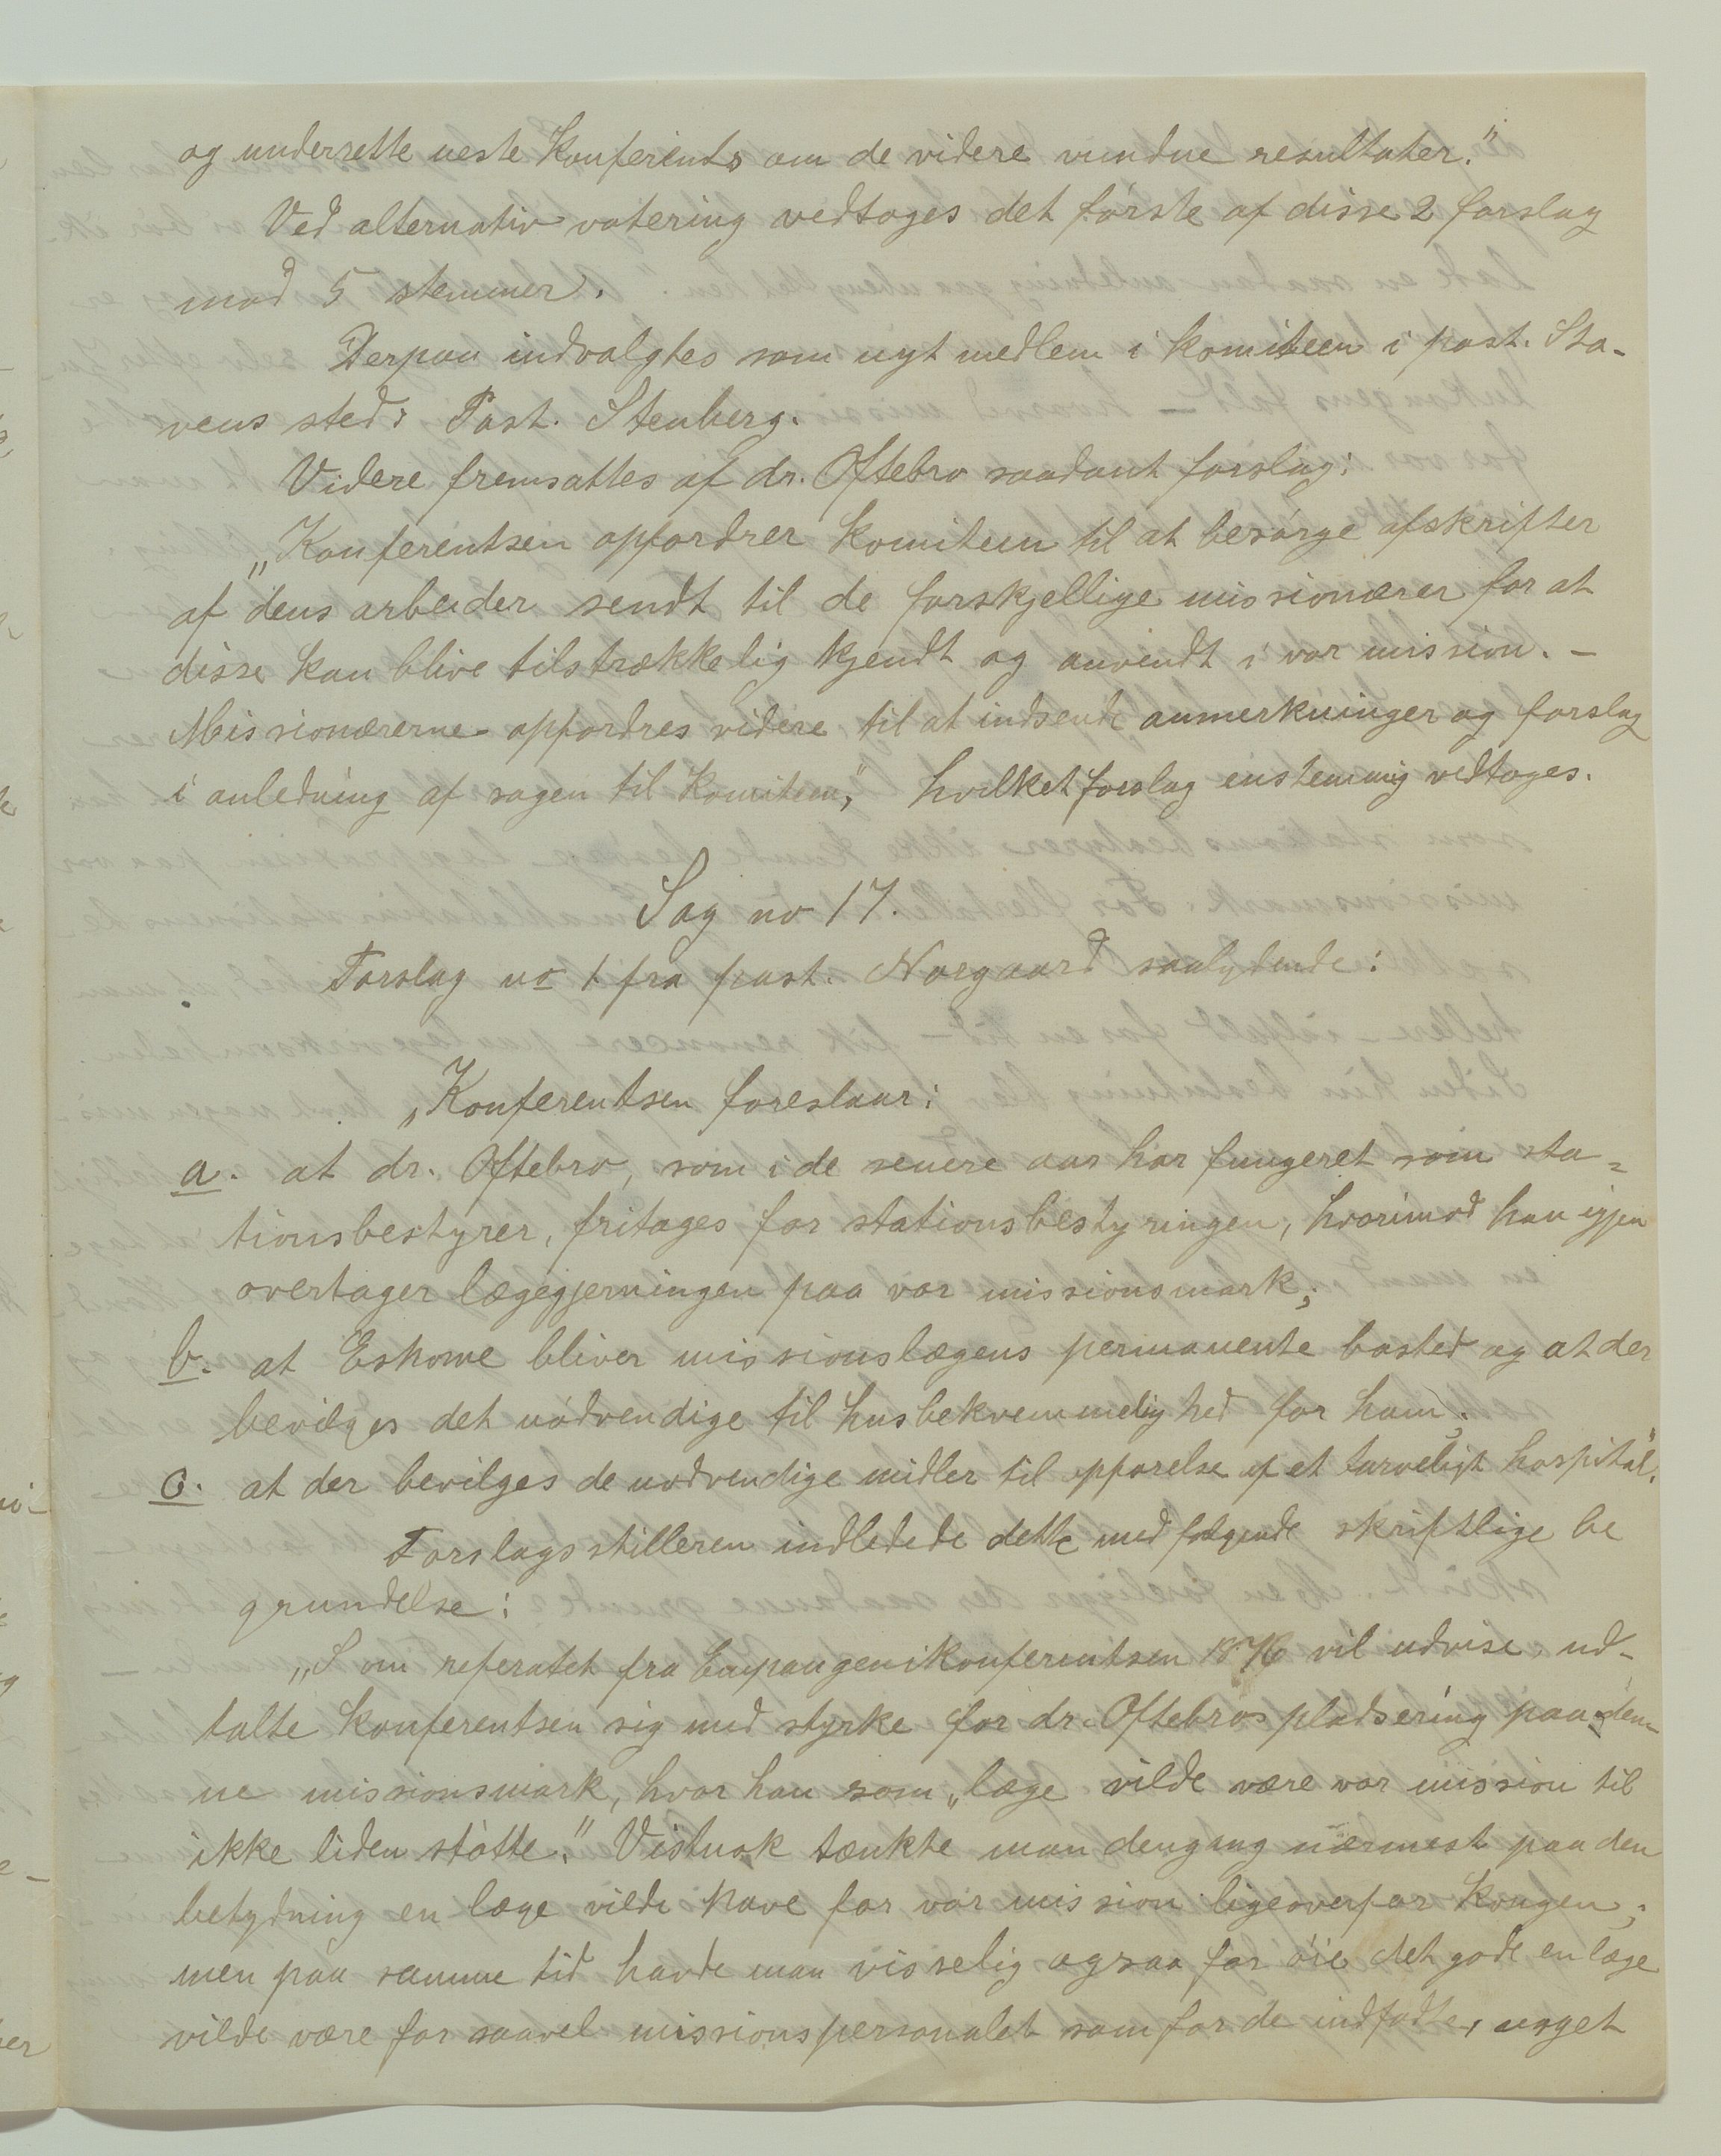 og underrette neste Konferents om de videre vundne resultater."
Ved alternativ votering vedtoges det første af disse 2 forslag
mod 5 stemmer.
Derpaa indvalgtes som nyt medlem i komiteen i past. Sta-
vens sted: Past. Stenberg.
Videre fremsattes af dr. Oftebro saadant forslag:
„Konferentsen opfordrer komiteen til at besørge afskrifter
af dens arbeider sendt til de forskjellige missionærer for at
disse kan blive tilstrækkelig kjendt og anvendt i vor mission. –
Missionærerne opfordres videre til at indsende anmerkninger og forslag
i anledning af sagen til komiteen", hvilket forslag enstemmig vedtoges.
Sag no 17.
Forslag no 1 fra past. Norgaard saalydende:
„Konferentsen foreslaar:
a. at dr. Oftebro, som i de senere aar har fungeret som sta-
tionsbestyrer, fritages for stationsbestyringen, hvorimod han igjen
overtager lægegjerningen paa vor missionsmark;
b. at Eshowe bliver missionslægens permanente bosted og at der
bevilges det nødvendige til husbekvemmelighed for ham;
c. at der bevilges de nødvendige midler til opførelse af et tarveligt hospital."
Forslagsstilleren indledede dette med følgende skriftlige be
grundelse:
„Som referatet fra Empangenikonferentsen 1876 vil udvise, ud-
talte konferentsen sig med styrke for dr. Oftebros pladsering paa den-
ne missionsmark, hvor han som „læge vilde være vor mission til
ikke liden støtte." Vistnok tænkte man dengang nærmest paa den
betydning en læge vilde have for vor mission ligeoverfor kongen;
men paa samme tid havde man visselig ogsaa for øie det gode en læge
vilde være for saavel missionspersonalet som for de indfødte, noget